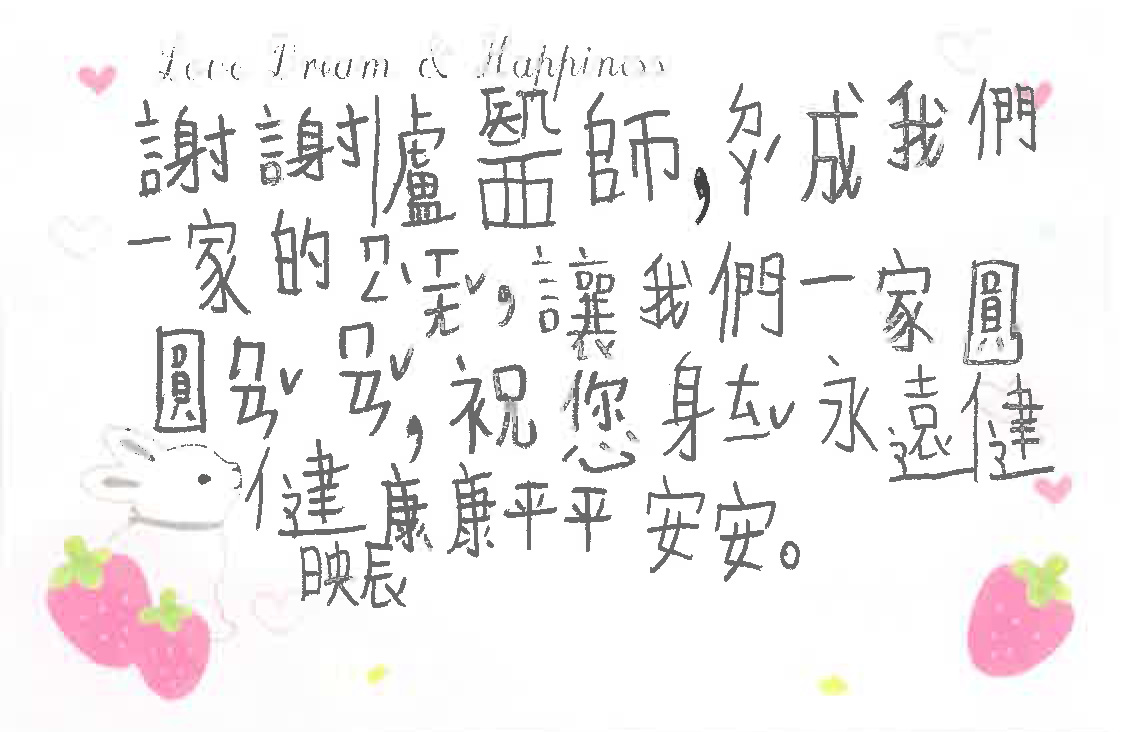 Love Dream & Happiness
謝謝盧醫師,ㄉㄚˊ成我們
一家的ㄇㄥˋ想ˇ,讓我們一家圓
圓ㄇㄢˇㄇㄢˇ,祝您身ㄊㄧˇ永遠健
健康康平平安安。
映辰